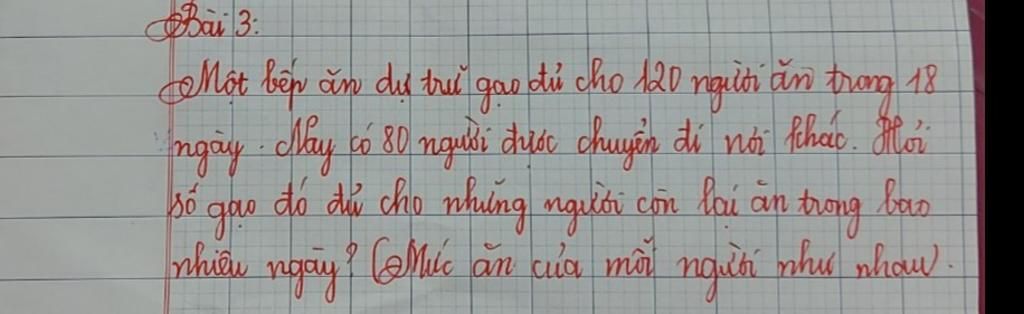 Bài 3:
Một bếp ăn dự trữ gạo đủ cho 120 người ăn trong 18
ngày. Nay có 80 người được chuyển đi nơi khác. Hỏi
số gạo đó đủ cho những người còn lại ăn trong bao
nhiêu ngày? (Mức ăn của mỗi người như nhau).